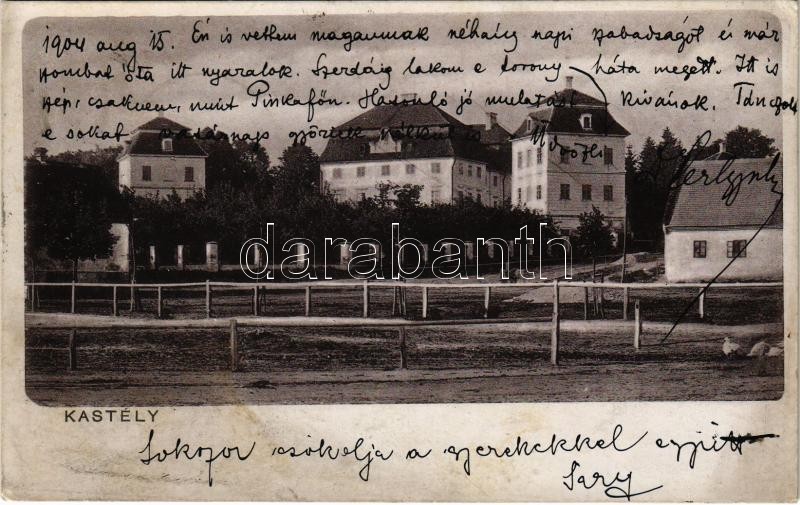 1904 aug 15. Én is vettem magamnak néhány napi szabadságot és már
szombat óta itt nyaralok. Szerdáig lakom e torony háta megett. Itt is
szép, csaknem, mint Pinkafőn. Hasonló jó mulatást kivánok. Tánczolok
e sokat vasárnap győztek nálkul is
Üdvözli
darabanth
KASTÉLY
Sokszor csókolja a gyerekekkel együtt
Sary